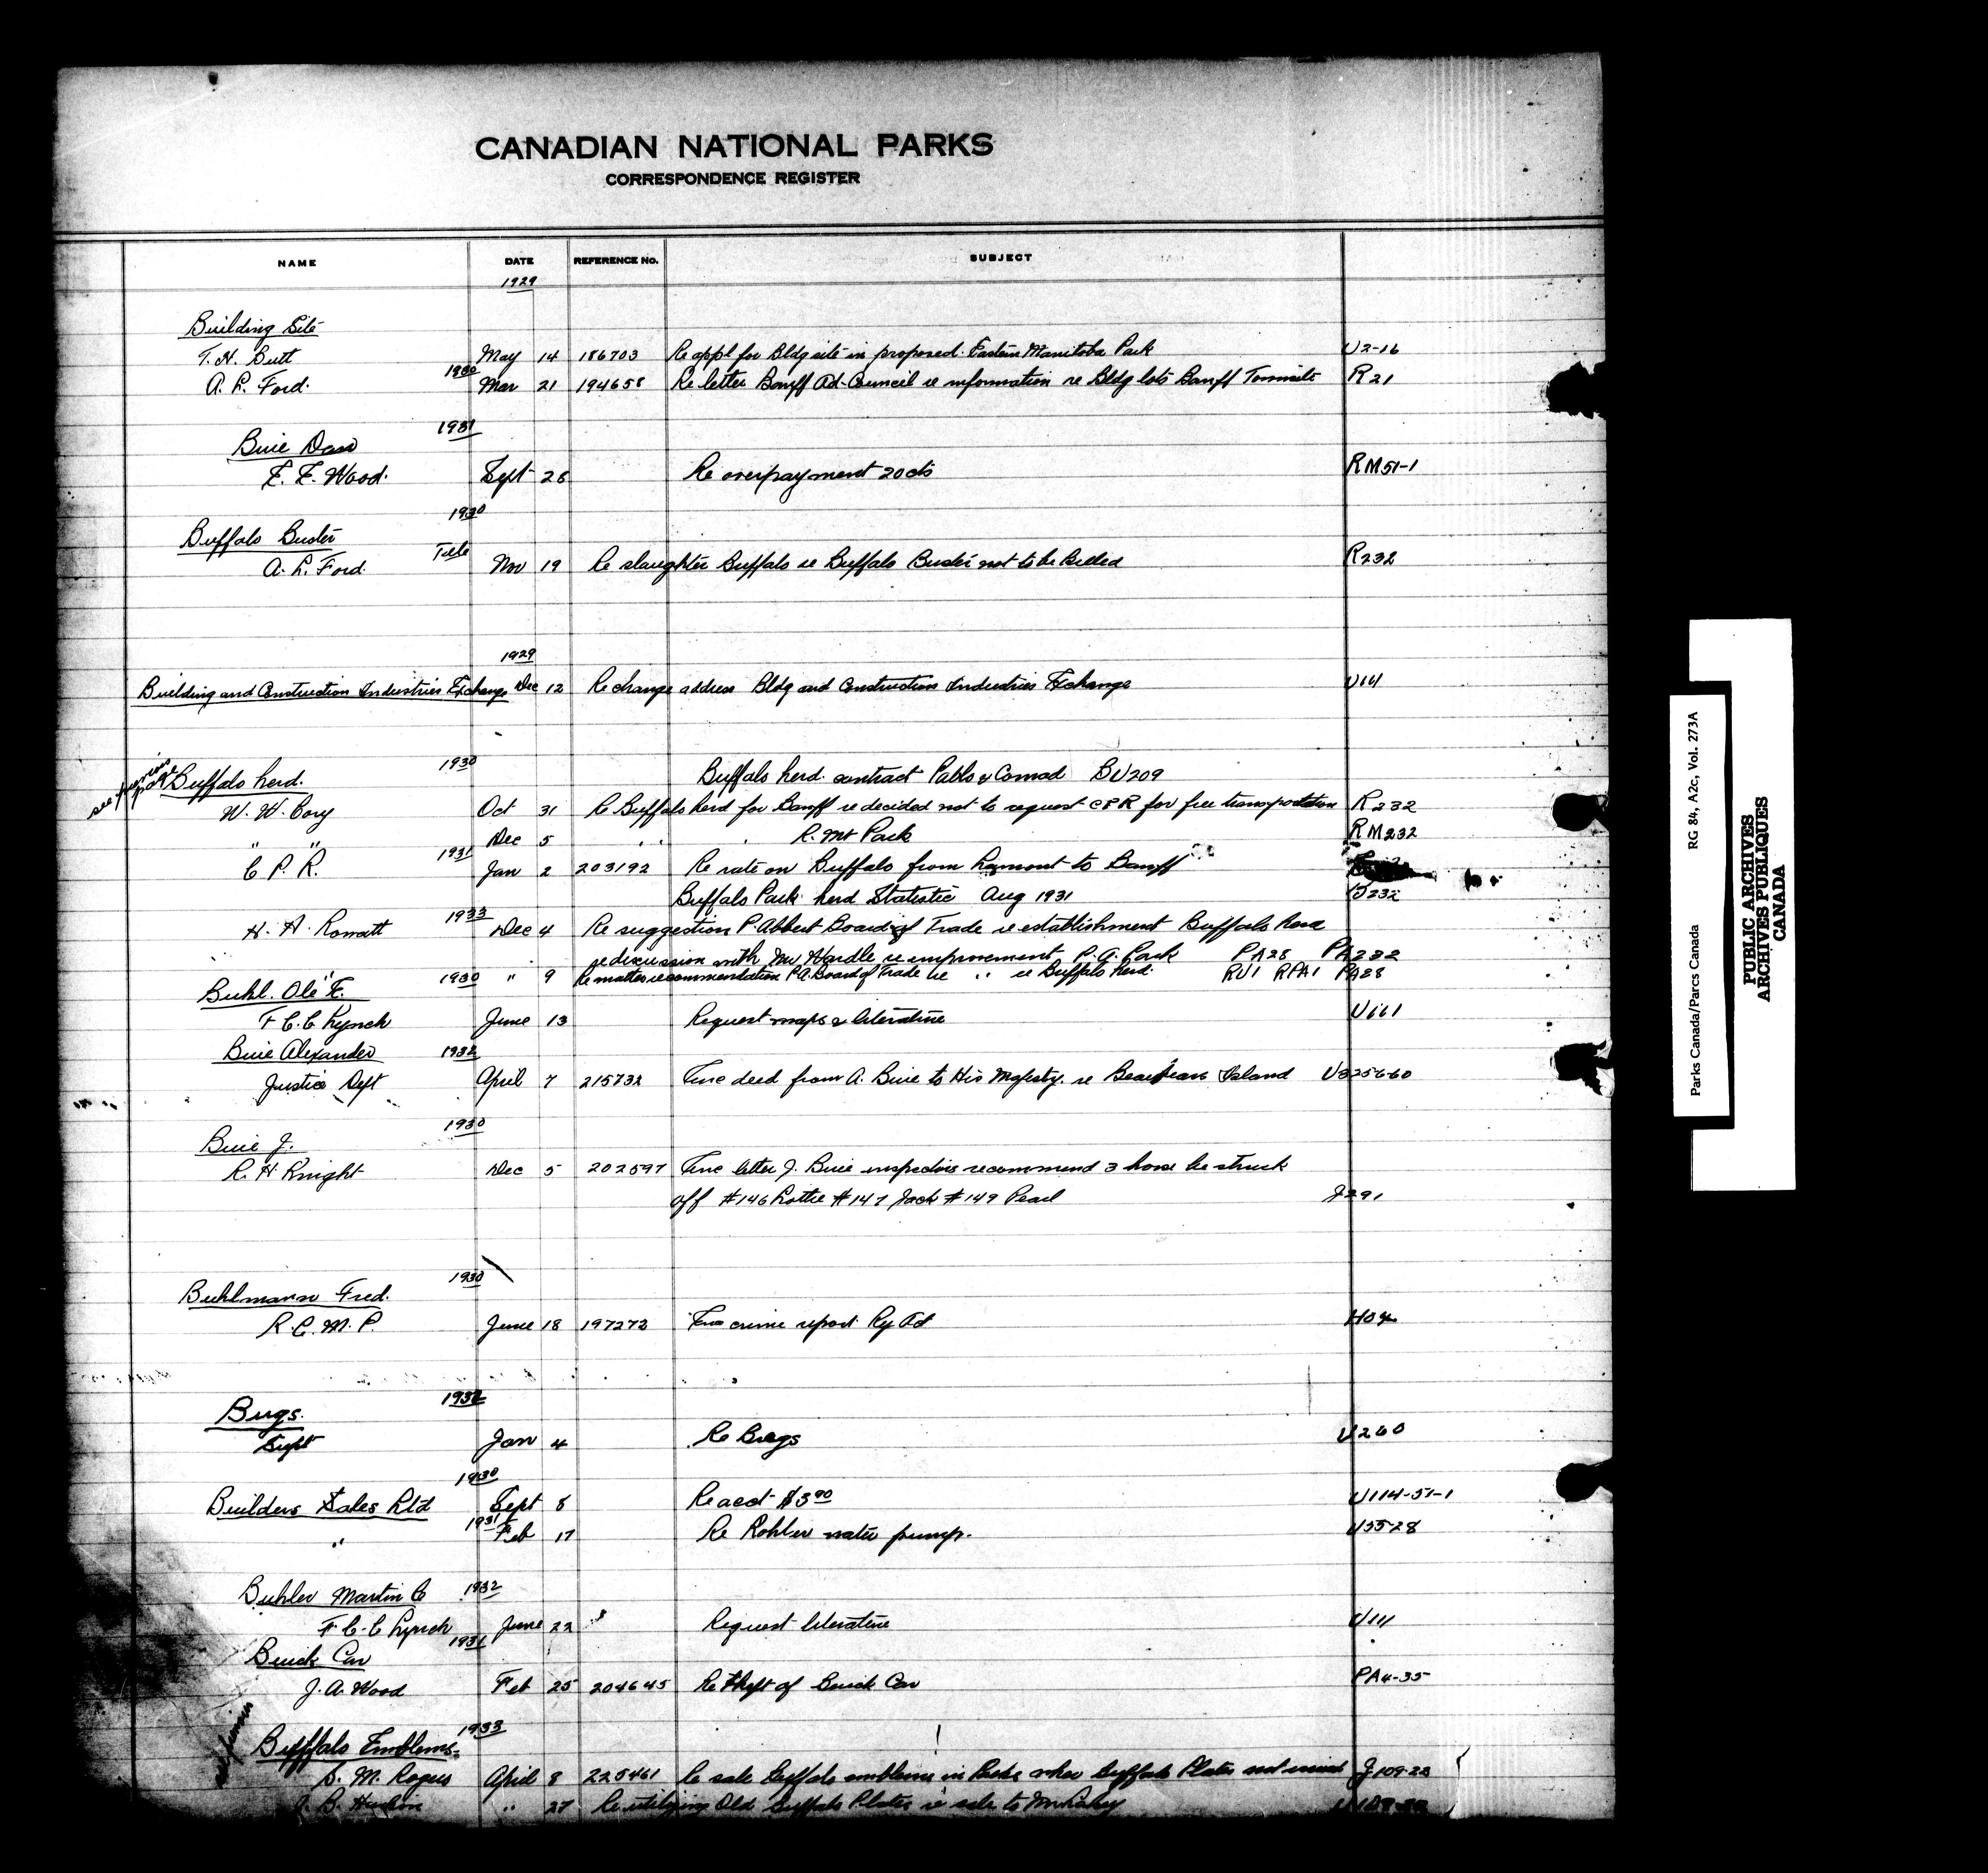 CANADIAN NATIONAL PARKS
CORRESPONDENCE REGISTER
NAME DATE REFERENCE No. SUBJECT
1929
Building Site
T. H. Butt May 14 186703 Re appl for Bldg site in proposed Eastern Manitoba Park U2-16
1930
A. L. Ford. Mar 21 194658 Re letter Banff Ad-Council re information re Bldg lots Banff Townsite R21
1931
Buie Dave
E. E. Wood. Sept 28 Re overpayment 20cts RM51-1
1930
Buffalo Buster
A. L. Ford. Tele Nov 19 Re slaughter Buffalo re Buffalo Buster not to be killed R232
1929
Building and Construction Industries Exchange Dec 12 Re change address Bldg and Construction Industries Exchange U14
see previous page
Buffalo herd. 1930 Buffalo herd contract Pablo & Conrad BU209
W. W. Cory Oct 31 Re Buffalo herd for Banff re decided not to request CPR for free transportation R232
" " Dec 5 R. Mt Park RM232
1931
C P. R. Jan 2 203192 Re rate on Buffalo from Lamont to Banff
Buffalo Park herd Statistic Aug 1931 B232
1933
H. A. Rowatt Dec 4 Re suggestion P. Albert Board of Trade re establishment Buffalo herd
re discussion with Mr Wardle re improvements P. A. Park PA28 PA232
" " 9 Re matter recommendation P.A. Board of Trade re " re Buffalo herd. RU1 RPA1 PA28
Buhl. Ole E. 1930
F C. C Lynch June 13 Request maps & literature U161
Buie Alexander 1932
Justice Dept April 7 215732 Enc deed from A. Buie to His Majesty. re Beaubears Island U325660
1930
Buie J.
R. H Knight Dec 5 202597 Enc letter J. Buie inspectors recommend 3 horse be struck
off #146 Lottie #147 Jack #149 Pearl J291
1930
Buhlmann Fred.
R. C. M. P. June 18 197272 Enc crime report Ry Act
1932
Bugs.
Supt Jan 4 Re Bugs U260
1930
Builders Sales Ltd Sept 8 Re acct $3.90 U114-51-1
1931
" Feb 17 Re Kohler water pump. U55-28
Buhler Martin C 1932
F C. C Lynch June 22 Request literature U111
1931
Buick Car
J. A. Wood Feb 25 204645 Re theft of Buick Car PA4-35
1933
Buffalo Emblems
S. M. Rogers April 8 225461 Re sale Buffalo emblems in Parks when Buffalo Plates not issued J109-23
" 27 Re utilizing Old Buffalo Plates re sale to
Parks Canada/Parcs Canada RG 84, A2c, Vol. 273A
PUBLIC ARCHIVES
ARCHIVES PUBLIQUES
CANADA